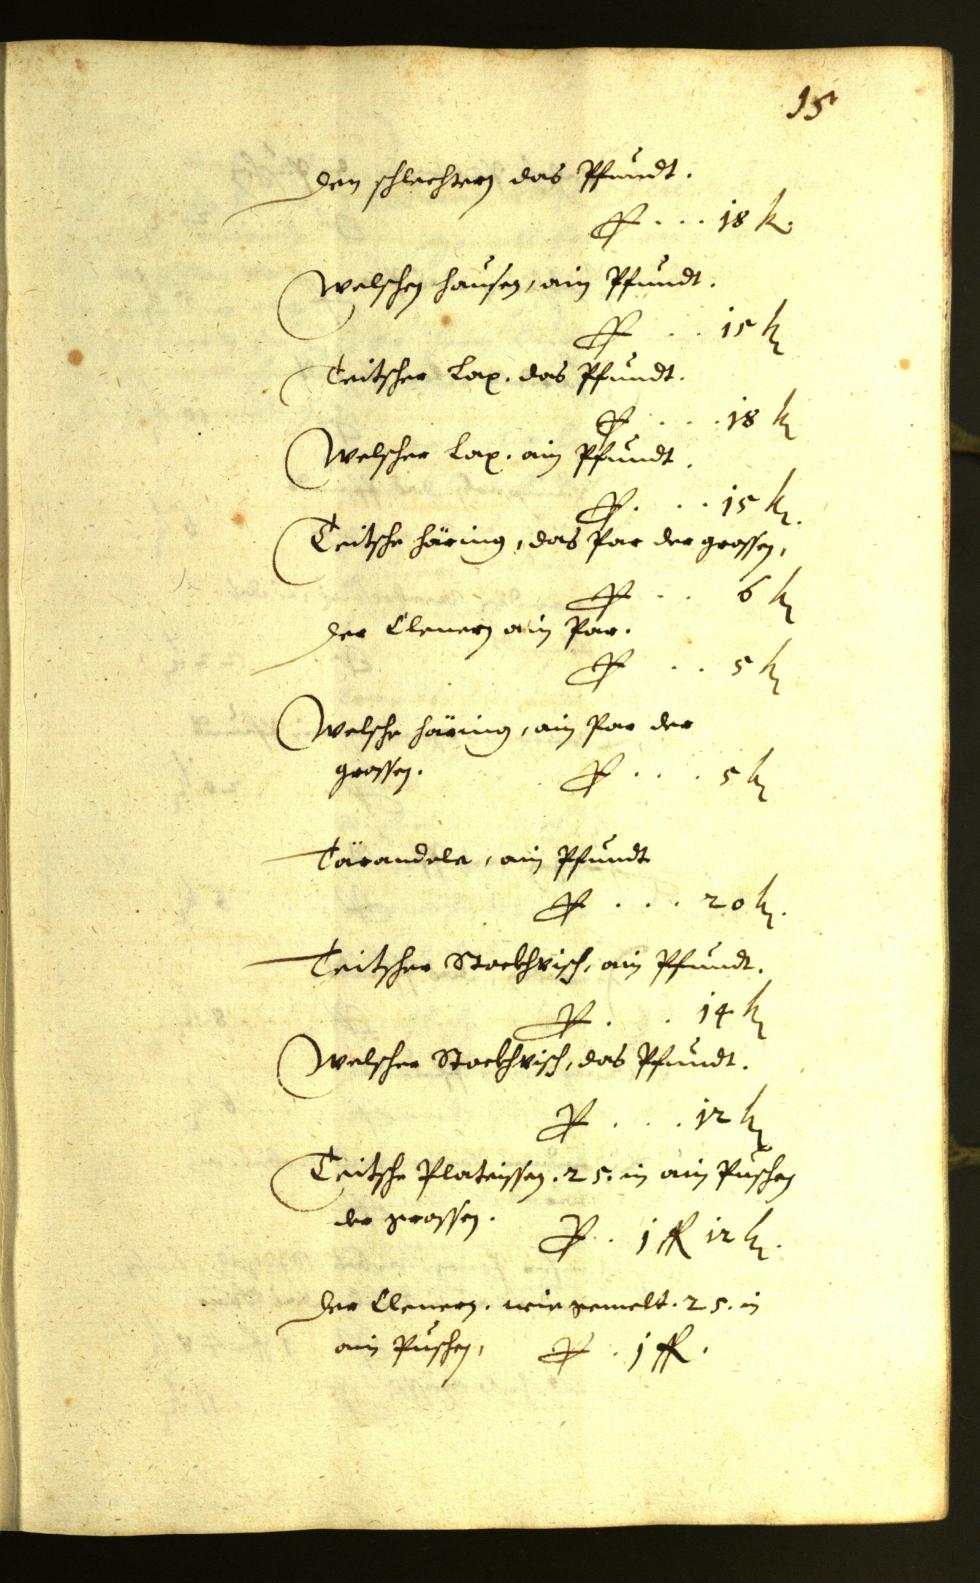 15
den schlechtern das Pfundt.
Pr . . . 18 k.
Welschen hausen, ain Pfundt.
Pr . . 15 k
Teitscher Lax. das Pfundt.
Pr . . . 18 k
Welscher Lax. ain Pfundt.
Pr . . . 15 k.
Teitsche häring, das Par der grossen,
Pr . . 6 k
der Clenern ain Par.
Pr . . 5 k
Welsche häring, ain Par der
grossen. Pr . . . 5 k
Tärandele, ain Pfundt
Pr . . . 20 k.
Teitscher Stockhvisch, ain Pfundt.
Pr . . 14 k
Welscher Stockhvisch, das Pfundt.
Pr . . . 12 k
Teitsche Plateissen. 25. in ain Puschen
der grossen. Pr . . 1 fl 12 k.
der Clenern. wie gemelt. 25. in
ain Puschen, Pr . 1 fl.